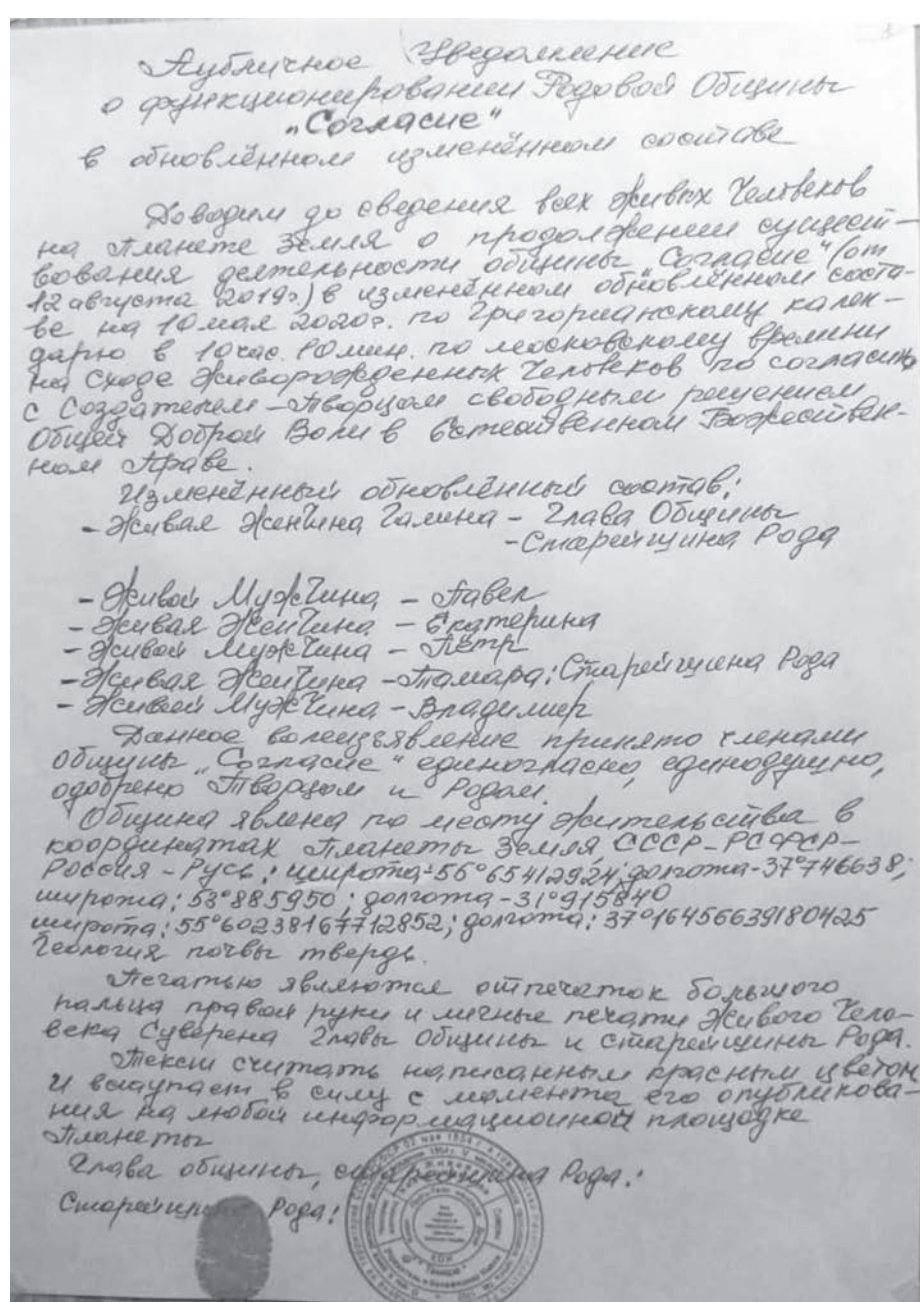 Публичное Уведомление
о функционировании Родовой Общины
"Согласие"
в обновлённом изменённом составе
Доводим до сведения всех Живых Человеков
на Планете Земля о продолжении сущест-
вования деятельности общины "Согласие" (от
12 августа 2019г.) в изменённом обновлённом соста-
ве на 10 мая 2020г. по Григорианскому кален-
дарю в 10 час. 10 мин. по московскому времени
на Сходе Живорожденных Человеков по согласию
с Создателем - Творцом свободным решением
Общей Доброй Воли в Естественном Божествен-
ном Праве.
Изменённый обновлённый состав:
- Живая ЖенЧина Галина - Глава Общины
- Старейшина Рода
- Живой МужЧина - Павел
- Живая ЖенЧина - Екатерина
- Живой МужЧина - Пётр
- Живая ЖенЧина - Тамара: Старейшина Рода
- Живой МужЧина - Владимир
Данное волеизъявление принято членами
Общины "Согласие" единогласно, единодушно,
одобрено Творцом и Родом.
Община явлена по месту жительства в
координатах Планеты Земля, СССР - РСФСР -
Россия - Русь: широта: 55°65412924; долгота - 37°746638;
широта: 53°885950; долгота - 31°915840
широта: 55°60238167712852; долгота: 37°16456639180425
Геология почвы твердь.
Печатью являются отпечаток большого
пальца правой руки и личные печати Живого Чело-
века Суверена Главы Общины и старейшины Рода.
Текст считать написанным красным цветом
И вступает в силу с момента его опубликова-
ния на любой информационной площадке
Планеты
Глава общины, старейшина Рода:
Старейшина Рода: